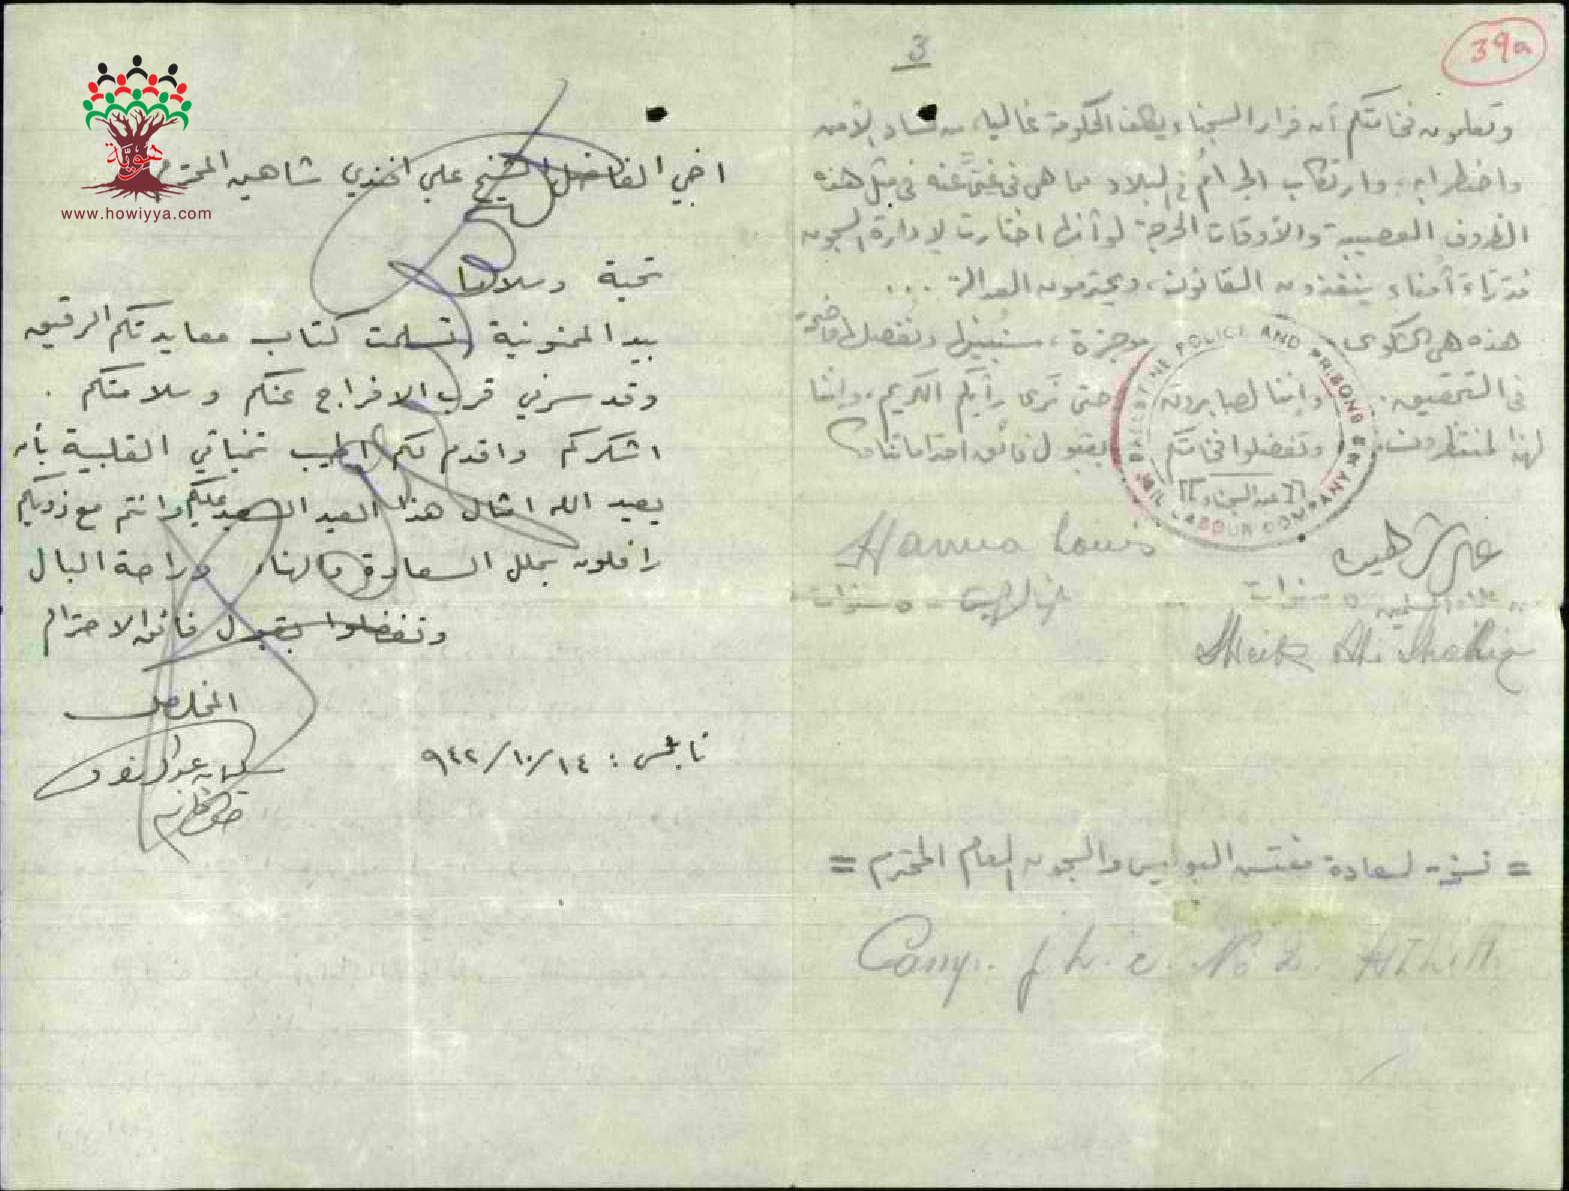 39a
3
وتعلمون فخامتكم أن فرار السجناء يكلف الحكومة غاليا، من فساد الأمن
واضطرابه، وارتكاب الجرائم في البلاد مما هي في غنىً عنه في مثل هذه
الظروف العصيبة والأوقات الحرجة لو أنها اختارت لإدارة السجون
أمناء ينفذون القانون، ويحترمون العدالة ...
هذه هي الشكوى موجزة، سنبينها ونفصلها
في التحقيق. وإننا لصابرون حتى نرى رأيكم الكريم، وإننا
لهذا لمنتظرون. وتفضلوا فخامتكم بقبول فائق احتراماتنا
PALESTINE POLICE AND PRISONS
JAIL LABOUR COMPANY
علي شاهين
٥ سنوات
Sheik Ali Shahin
Hanna Louis
٥ سنوات
= نسخة لسعادة مفتش البوليس والسجون العام المحترم =
Camp. J.L.C. No 2. Athlit.
هوية
www.howiyya.com
اخي الفاضل الشيخ علي افندي شاهين المحترم
تحية وسلاما
بيد الممنونية تسلمت كتاب معايدتكم الرقيق
وقد سرني قرب الافراج عنكم وسلامتكم .
اشكركم واقدم لكم اطيب تمنياتي القلبية بأن
يعيد الله امثال هذا العيد السعيد عليكم وانتم مع ذويكم
رافلون بحلل السعادة والهناء وراحة البال
وتفضلوا بقبول فائق الاحترام
المخلص
نابلس : ١٤/١٠/٩٤٢